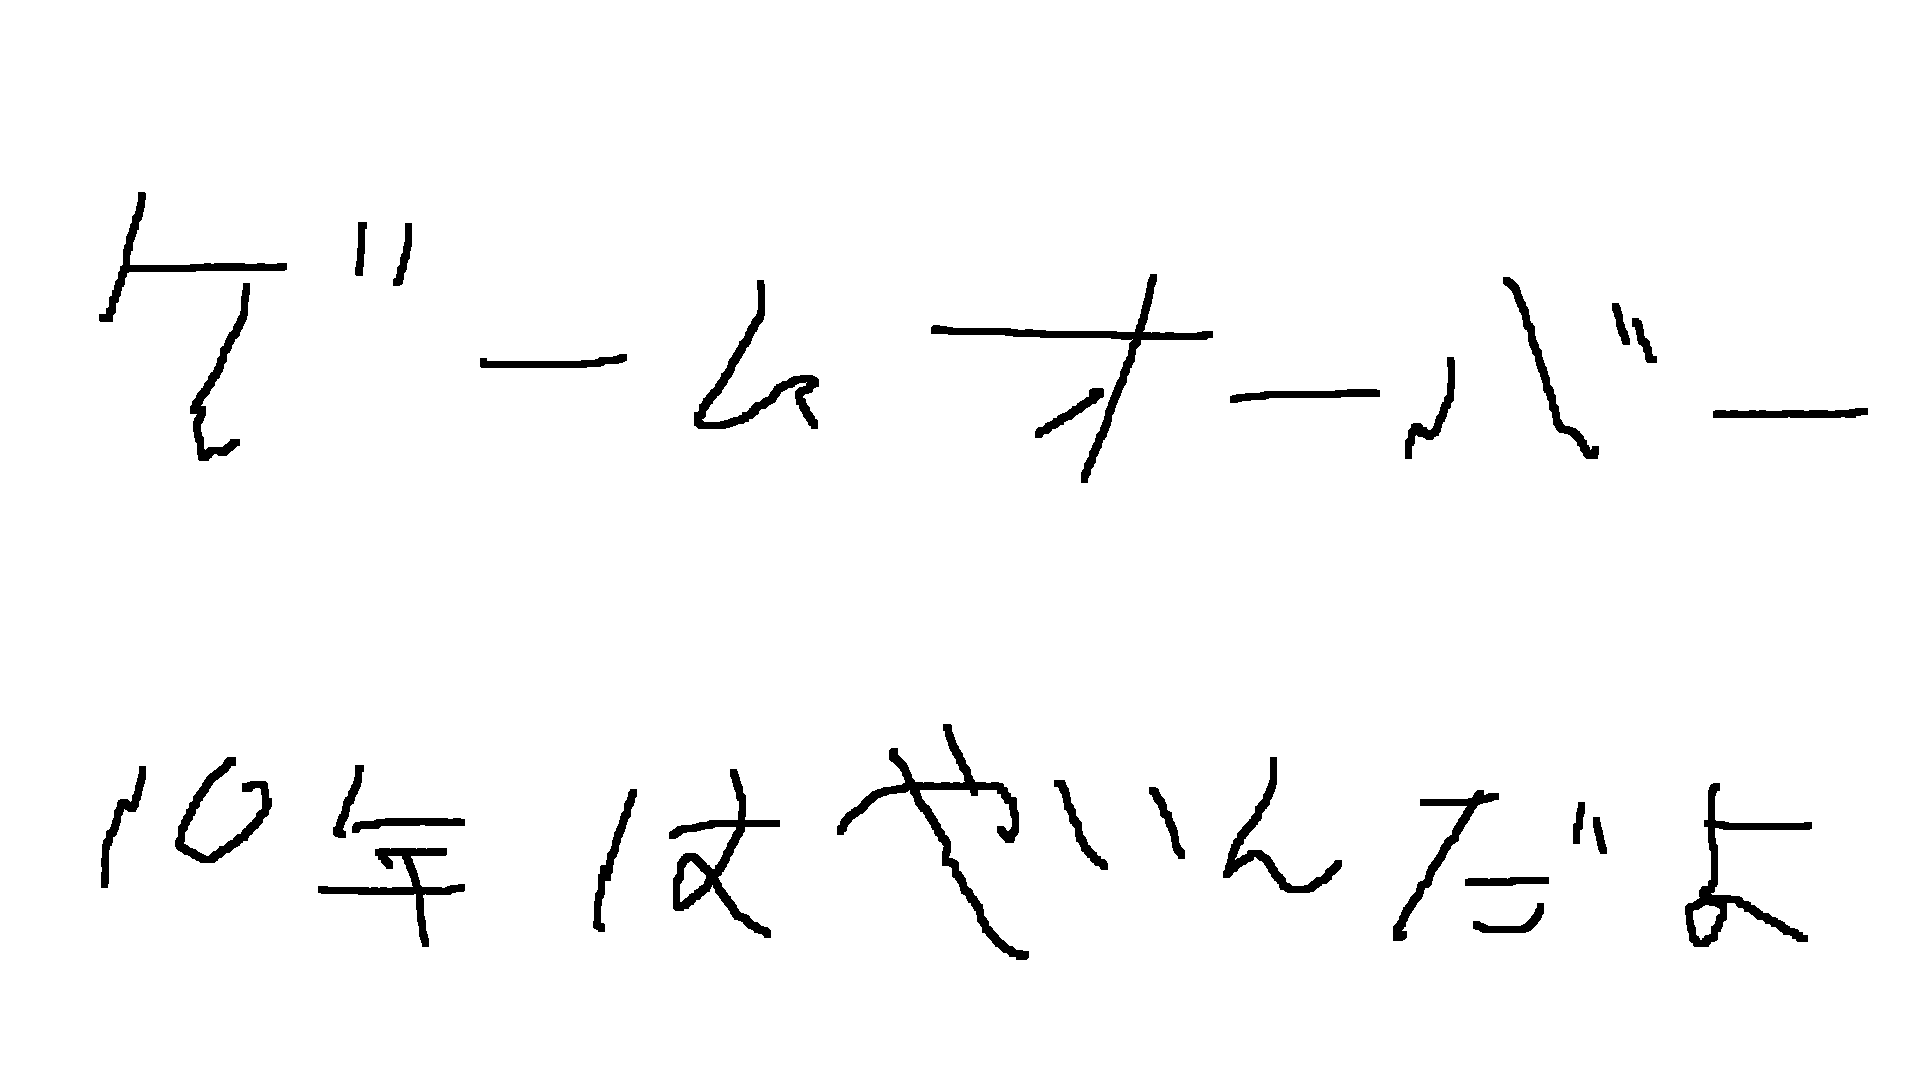 ゲームオーバー
10年はやいんだよ